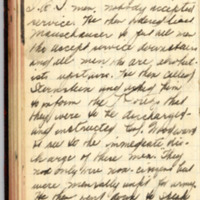 I & I men, nobody accepted
service. He then ordered Capt
Mauschauser to put all men
who accept service downstairs
and all men who are absolut-
ists upstairs. He then called
and asked him
to inform the Russ. that
they were to be discharged
and instructed Sgt. Woodward
to see to the immediate dis-
charge of these men. They
not only were non-citizens but
were mentally unfit for army.
He then went down to speak